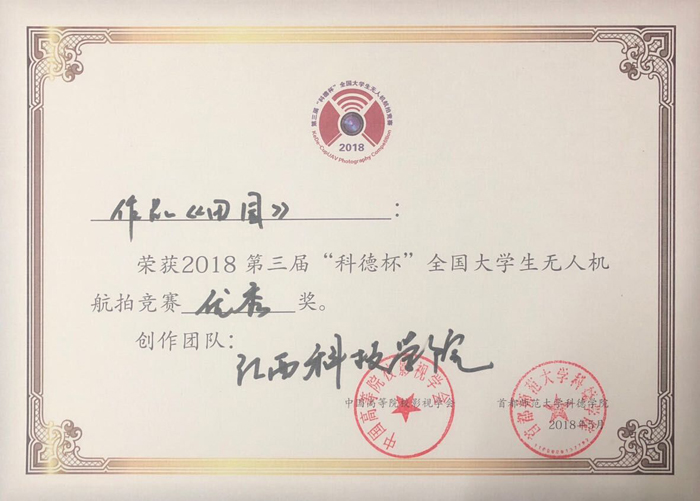 第三届“科德杯”全国大学生无人机航拍竞赛
2018
作品《田园》:
荣获2018 第三届“科德杯”全国大学生无人机
航拍竞赛优秀奖。
创作团队:
江西科技学院
中国高等院校影视学会
首都师范大学科德学院
2018年5月
中国高等院校影视学会
首都师范大学科德学院